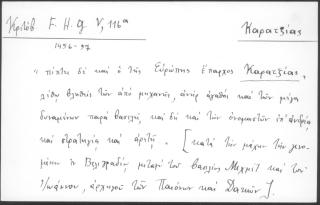 Κριτόβ F. H. G V, 116ᵃ Καρατζίας
1456-57
"πίπτει δὲ καὶ ὁ τῆς Εὐρώπης ἔπαρχος Καρατζίας,
λίθῳ βληθεὶς τῶν ἀπὸ μηχανῆς, ἀνὴρ ἀγαθὸς καὶ τῶν μέγα
δυναμένων παρὰ βασιλεῖ καὶ δὴ καὶ τῶν ὀνομαστῶν ἐπ' ἀνδρίᾳ
καὶ στρατηγίᾳ καὶ ἀρετῇ. [κατὰ τὴν μάχην τὴν γενο-
μένην ἐν Βελιγραδίῳ μεταξὺ τοῦ βασιλέως Μεχμὲτ καὶ τοῦ
Ἰωάννου, ἀρχηγοῦ τῶν Παιόνων καὶ Δακῶν].